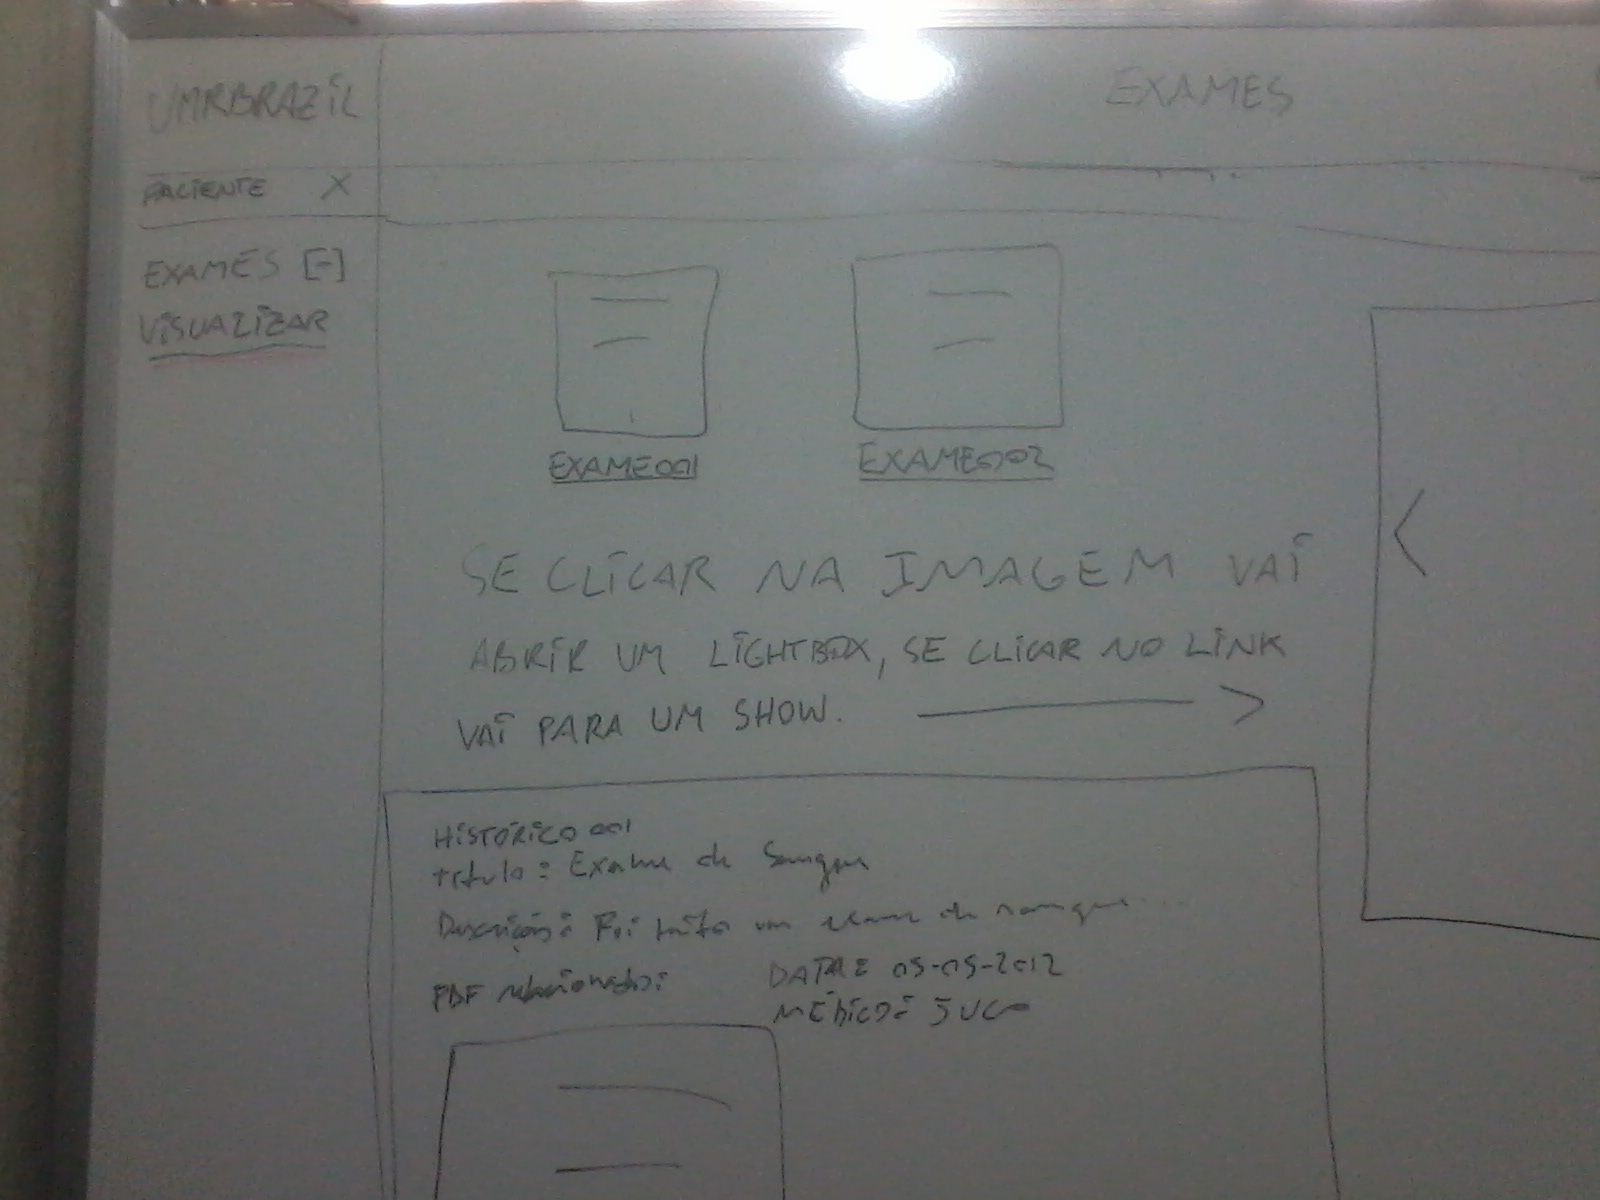 UMRBRAZIL
EXAMES
PACIENTE X
EXAMES [-]
VISUALIZAR
EXAME001
EXAME002
SE CLICAR NA IMAGEM VAI
ABRIR UM LIGHTBOX, SE CLICAR NO LINK
VAI PARA UM SHOW.
HISTÓRICO 001
título: Exame de Sangue
Descrição: Foi feito um exame de sangue...
PDF relacionado:
DATA: 05-05-2012
MÉDICO: